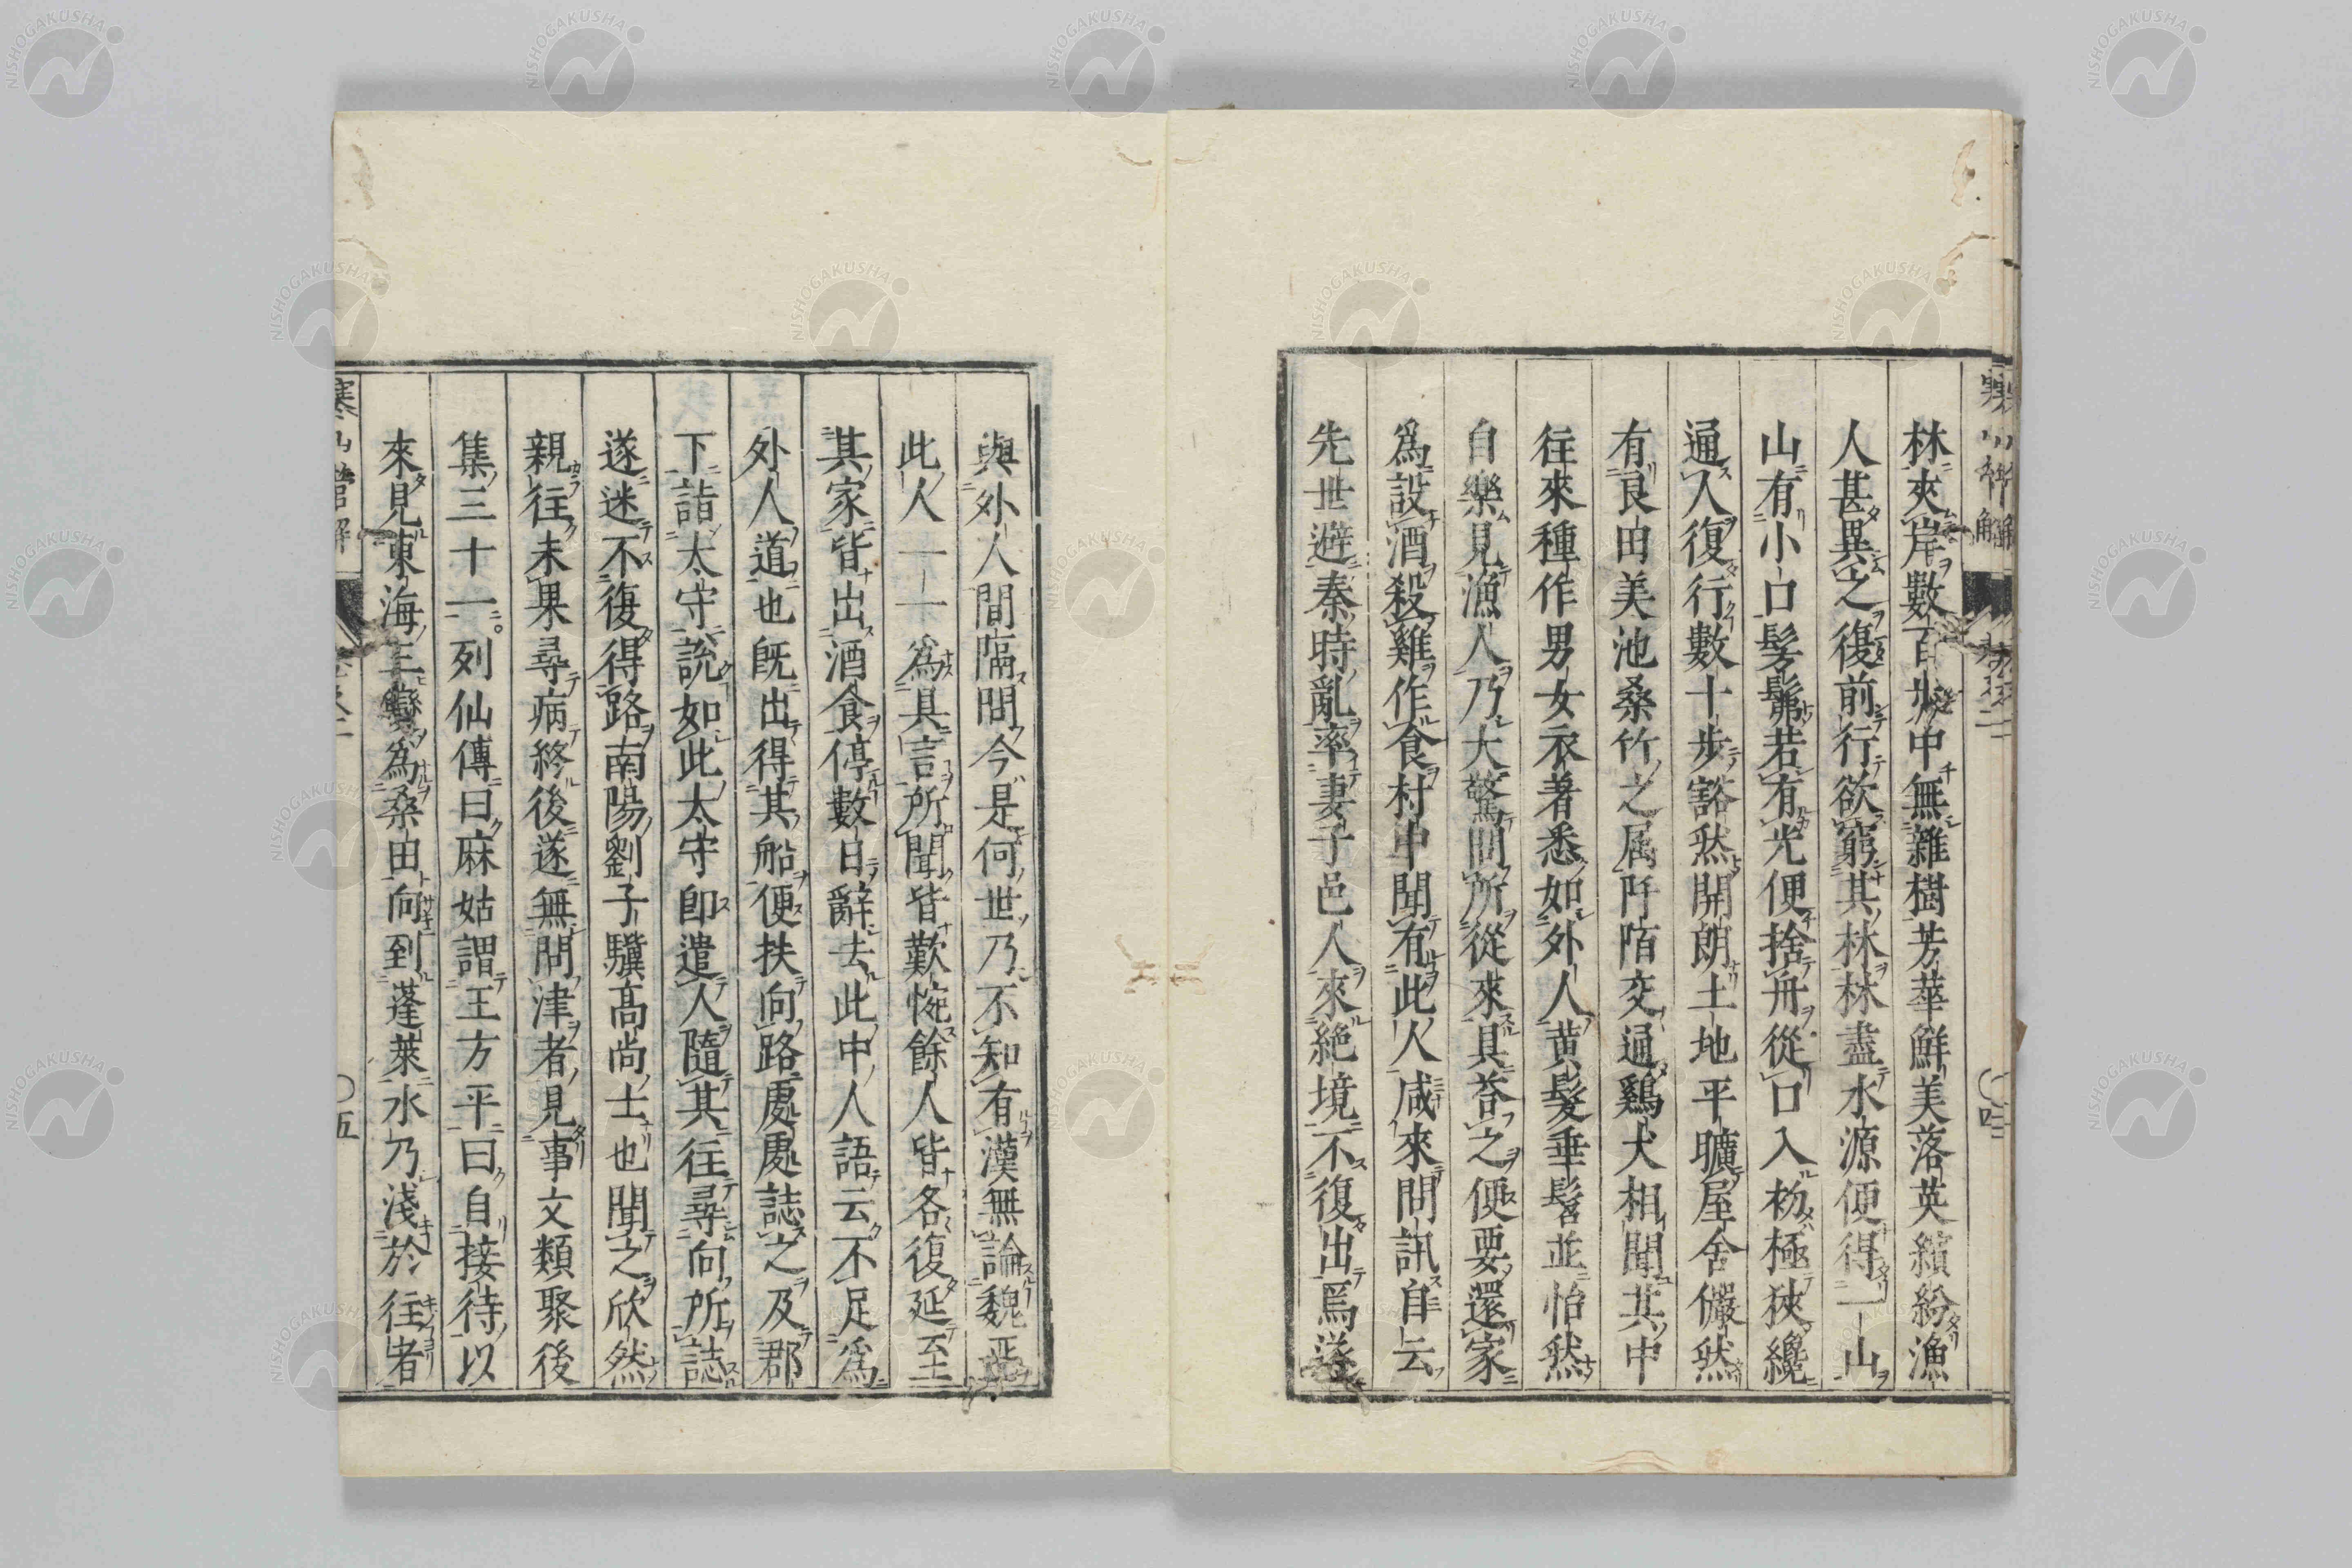 林夾岸數百步中無雜樹芳華鮮美落英繽紛漁
人甚異之復前行欲窮其林林盡水源便得一山
山有小口髣髴若有光便捨舟從口入初極狹纔
通人復行數十步豁然開朗土地平曠屋舍儼然
有良田美池桑竹之属阡陌交通鷄犬相聞其中
往來種作男女衣著悉如外人黄髮垂髫並怡然
自樂見漁人乃大驚問所從來具荅之便要還家
爲設酒殺雞作食村中聞有此人咸來問訊自云
先世避秦時亂率妻子邑人來絶境不復出焉遂
與外人間隔問今是何世乃不知有漢無論魏
此人一一爲具言所聞皆歎惋餘人皆各復延至
其家皆出酒食停數日辭去此中人語云不足爲
外人道也既出得其船便扶向路處處誌之及郡
下詣太守說如此太守即遣人隨其往尋向所誌
遂迷不復得路南陽劉子驥高尚士也聞之欣然
親往未果尋病終後遂無問津者見事文類聚後
集三十一。列仙傳曰麻姑謂王方平曰自接待以
來見東海三變爲桑田向到蓬萊水乃淺於往者
五
NISHOGAKUSHA